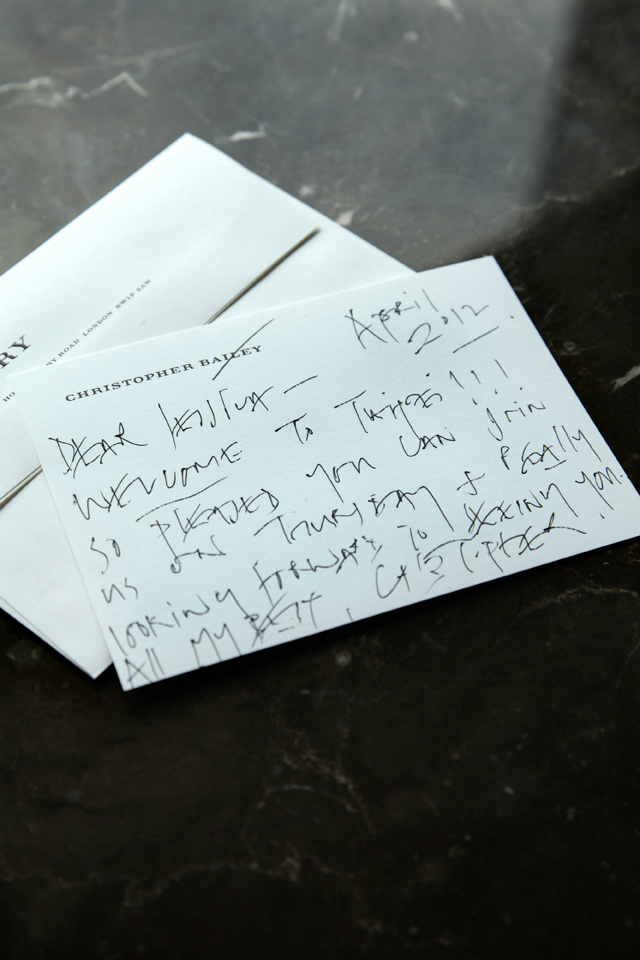 RY
HO
RY ROAD LONDON SW1P 2AW
CHRISTOPHER BAILEY
April
2012
DEAR —
WELCOME To TAiPEi!!!
SO PLEASED you CAN Join
us ON THURSDAY & REAlly
looking forward To SEEING you.
All My BEST, CHRISTOPHER.